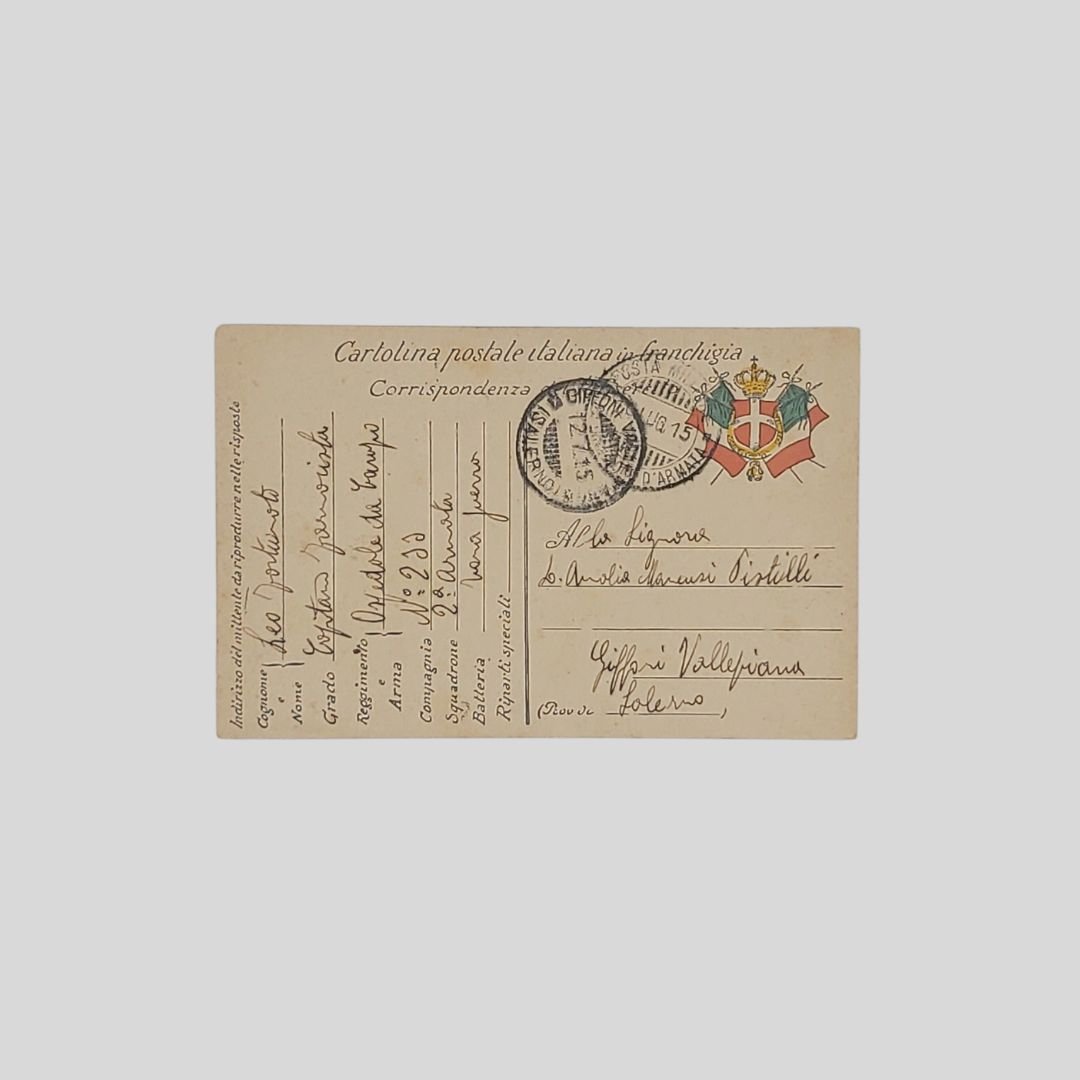 Cartolina postale italiana in franchigia
Corrispondenza
POSTA
LUG 15
D'ARMATA
GIFFONI
(SALERNO)
12.7.15
Indirizzo del mittente da riprodurre nelle risposte
Cognome e Nome { Leo Fortunato
Grado Capitano Farmacista
Reggimento e Arma { Ospedale da Campo
Compagnia No. 233
Squadrone 2a Armata
Batteria zona guerra
Riparti speciali
Alla Signora
D. Amalia Pistilli
Giffoni Vallepiana
(Prov. di Salerno)